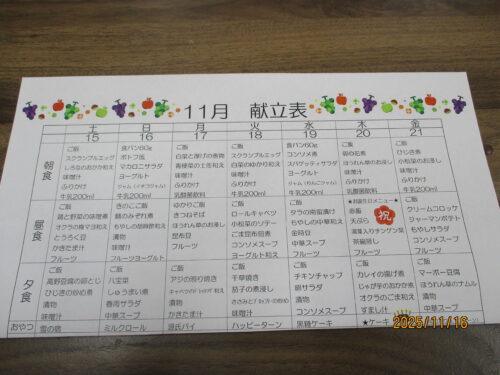 11月 献立表
土 日 月 火 水 木 金
15 16 17 18 19 20 21
朝食
ご飯
スクランブルエッグ
しろなのおかか和え
味噌汁
ふりかけ
牛乳200ml
食パン60g
ポトフ風
マカロニサラダ
ヨーグルト
ジャム(イチゴジャム)
牛乳200ml
ご飯
白菜と厚揚げの煮物
青梗菜の土佐和え
味噌汁
ふりかけ
乳酸菌飲料
ご飯
スクランブルエッグ
白菜のゆかり和え
味噌汁
ふりかけ
牛乳200ml
食パン60g
コンソメ煮
スパゲッティサラダ
ヨーグルト
ジャム(りんごジャム)
牛乳200ml
ご飯
卯の花煮
ほうれん草のお浸し
味噌汁
ふりかけ
乳酸菌飲料
ご飯
ひじき煮
小松菜のお浸し
味噌汁
ふりかけ
牛乳200ml
昼食
ご飯
鶏と野菜の味噌煮
オクラの梅マヨ和え
とうろく豆
かきたま汁
フルーツ
きのこご飯
鯖のみぞれ煮
もやしの胡麻酢和え
漬物
味噌汁
フルーツヨーグルト
ゆかりご飯
きつねそば
ほうれん草のお浸し
昆布豆
フルーツ
ご飯
ロールキャベツ
小松菜のソテー
ごま昆布佃煮
コンソメスープ
フルーツ
ご飯
タラの南蛮漬け
もやしのナムル
金時豆
中華スープ
フルーツ
★お誕生日メニュー★
赤飯
天ぷら
祝
茶碗蒸し
フルーツ
ご飯
クリームコロッケ
ジャーマンポテト
もやしサラダ
コンソメスープ
フルーツ
夕食
ご飯
高野豆腐の卵とじ
ひじきの炒め煮
漬物
味噌汁
ご飯
八宝菜
しゅうまい煮
春雨サラダ
漬物
中華スープ
ご飯
アジの照り焼き
漬物
かきたま汁
ご飯
干草焼き
茄子の煮浸し
漬物
味噌汁
ご飯
チキンチャップ
卵サラダ
漬物
コンソメスープ
ご飯
カレイの揚げ煮
じゃが芋のおかか煮
オクラのごま和え
すまし汁
ご飯
マーボー豆腐
ほうれん草のナムル
漬物
中華スープ
おやつ
雪の宿
ミルクロール
源氏パイ
ハッピーターン
黒糖ケーキ
★ケーキ
2025/11/16